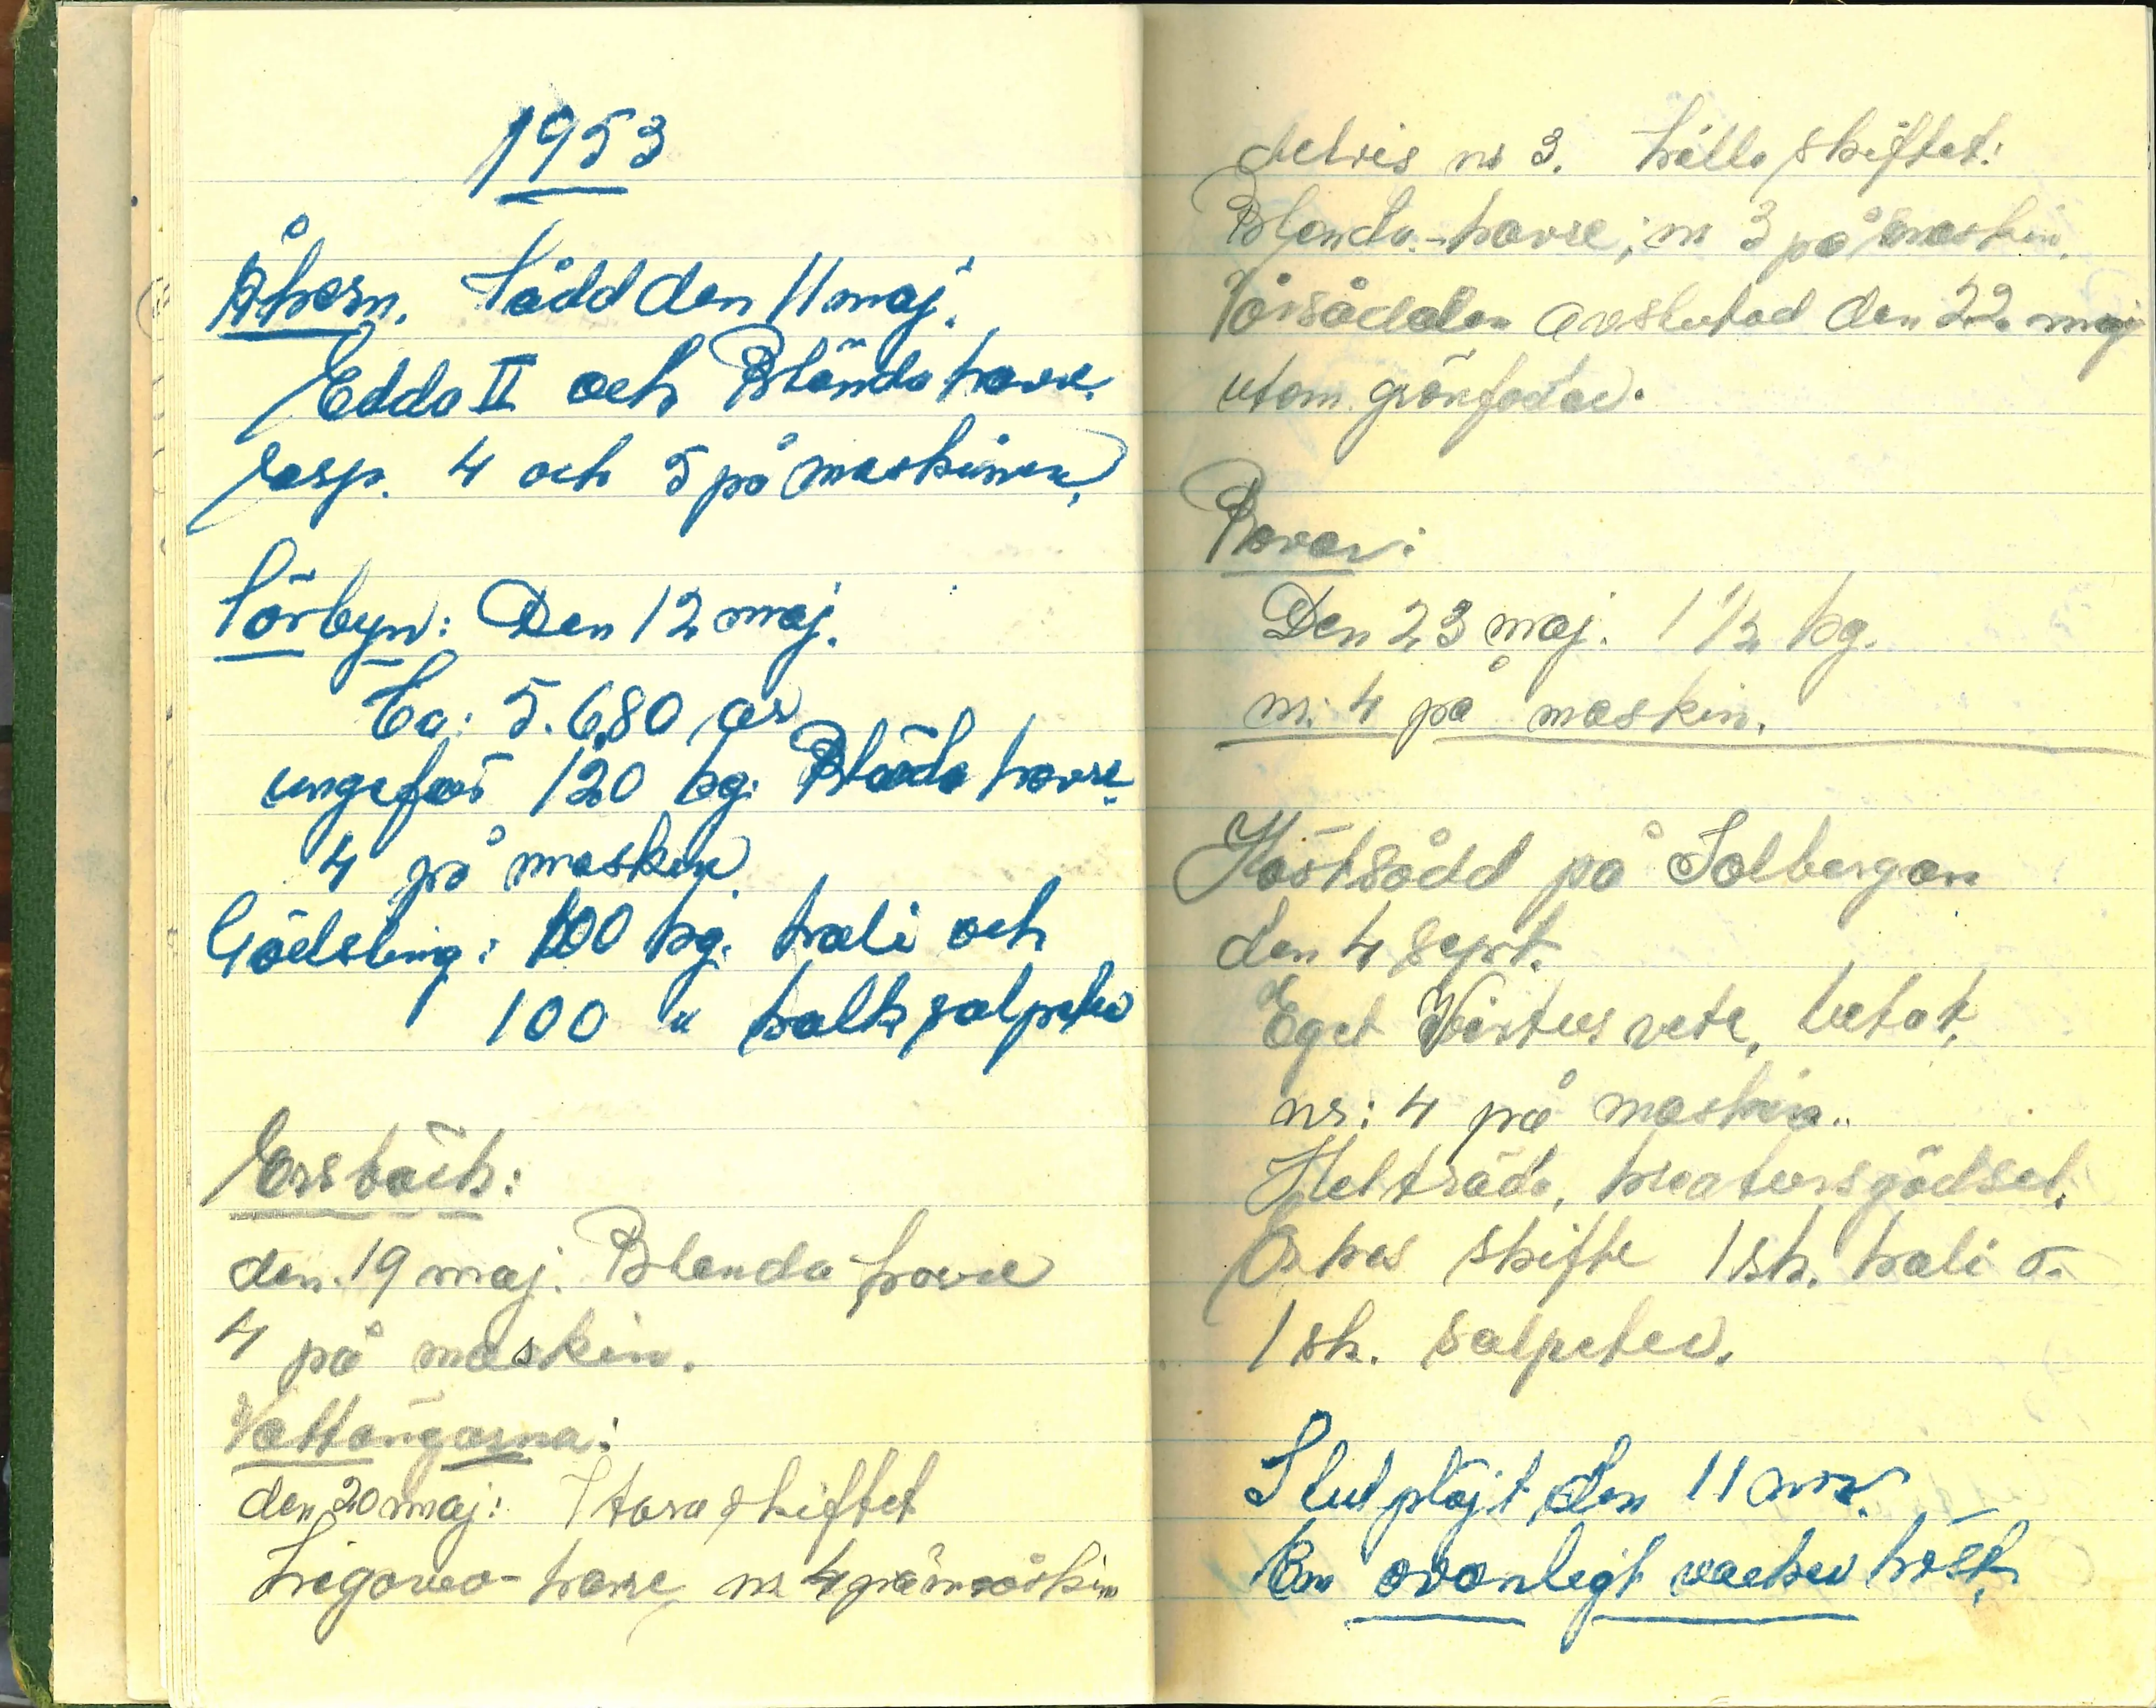 1953
Åkern. Sådd den 11 maj.
Edda II och Blända havre.
resp. 4 och 5 på maskinen.
Sörbyn: Den 12 maj.
Ca: 5.680 ar
ungefär 120 kg. Blända havre.
4 på maskin
Gödsling: 100 kg. kali och
100 " kalksalpeter
Ersbäck:
den 19 maj. Blenda havre
4 på maskin.
Vattängarna:
den 20 maj: Stora skiftet
havre nr 4 på maskin
delvis nr 3. Lilla skiftet:
Blenda-havre; nr 3 på maskin.
Vårsådden avslutad den 22. maj
utom grönfoder.
Rovor:
Den 23 maj. 1 1/2 kg.
nr: 4 på maskin.
Höstsådd på Solbergan
den 4 sept.
Eget Virtus vete, betat,
nr: 4 på maskin..
Helträda, kreatursgödsel.
skifte 1 sk. kali o.
1 sk. salpeter.
Slutplöjt den 11 nov.
En ovanligt vacker höst.